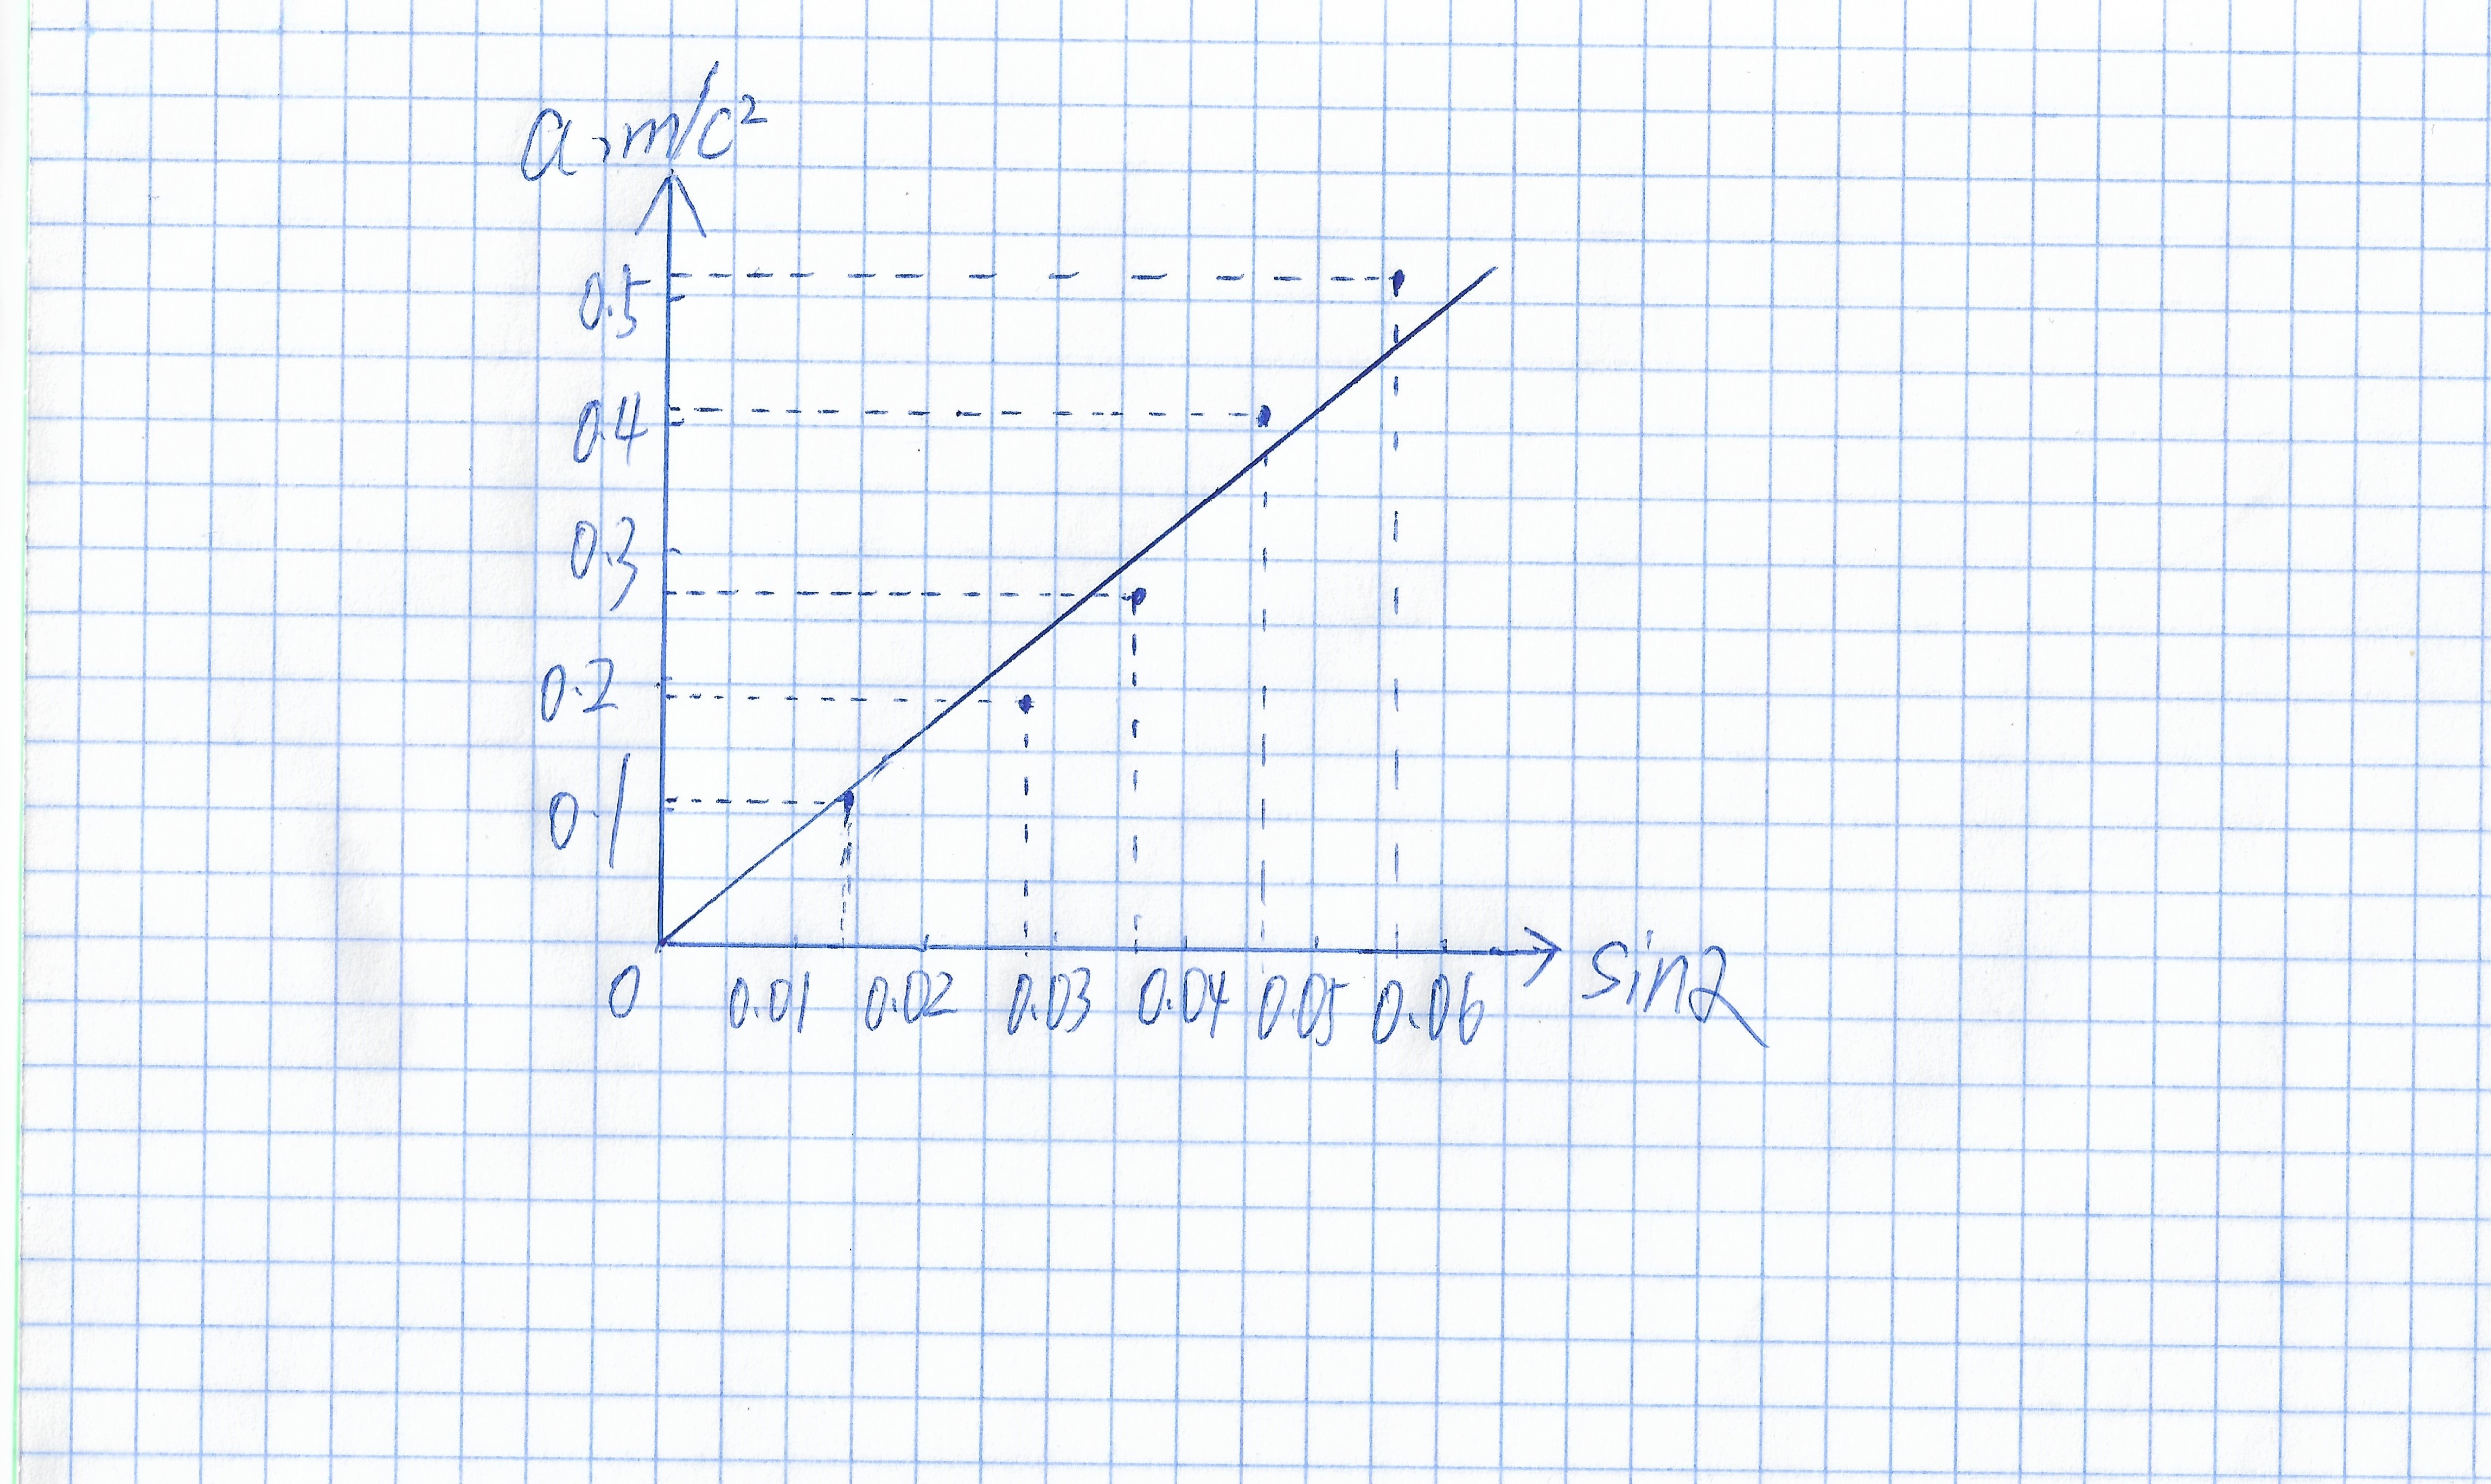 a, m/c²
0.5
0.4
0.3
0.2
0.1
0 0.01 0.02 0.03 0.04 0.05 0.06 sinα